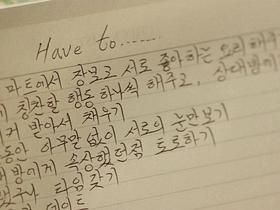 Have to........
마트에서 장보고 서로 좋아하는 요리 해주
칭찬할 행동 하나씩 해주고, 상대방이
받아서 채우기
동안 아무말 없이 서로의 눈만 보기
방에게 속상했던점 토로하기
타임 갖기
데이트